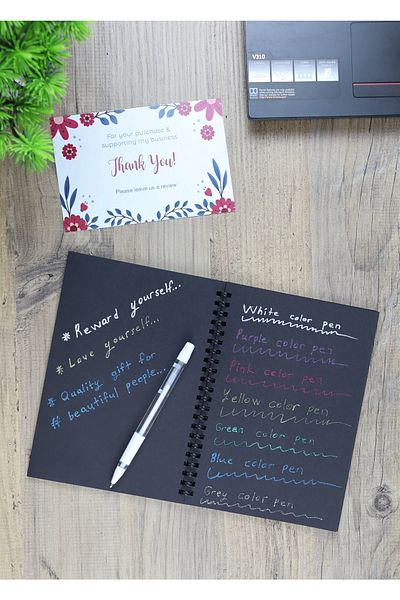 V310
For your purchase &
supporting my business
Thank You!
Please leave us a review
* Reward yourself...
* Love yourself...
* Quality gift for
# beautiful people...
White color pen
Purple color pen
Pink color pen
Yellow color pen
Green color pen
Blue color pen
Grey color pen